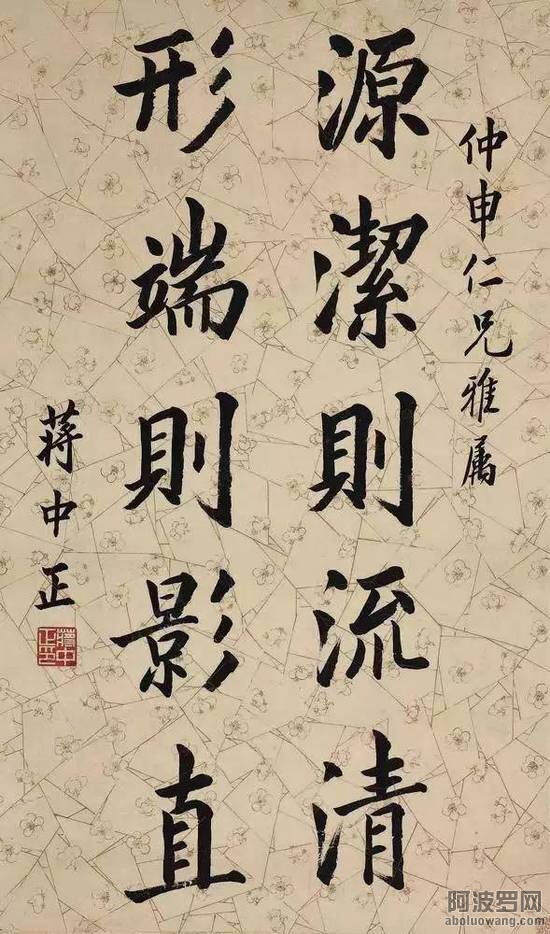 仲申仁兄雅属
源潔則流清
形端則影直
蔣中正
蔣中正印
阿波罗网
aboluowang.com